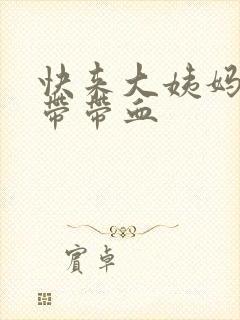 快来大姨妈
带带血
宾卓